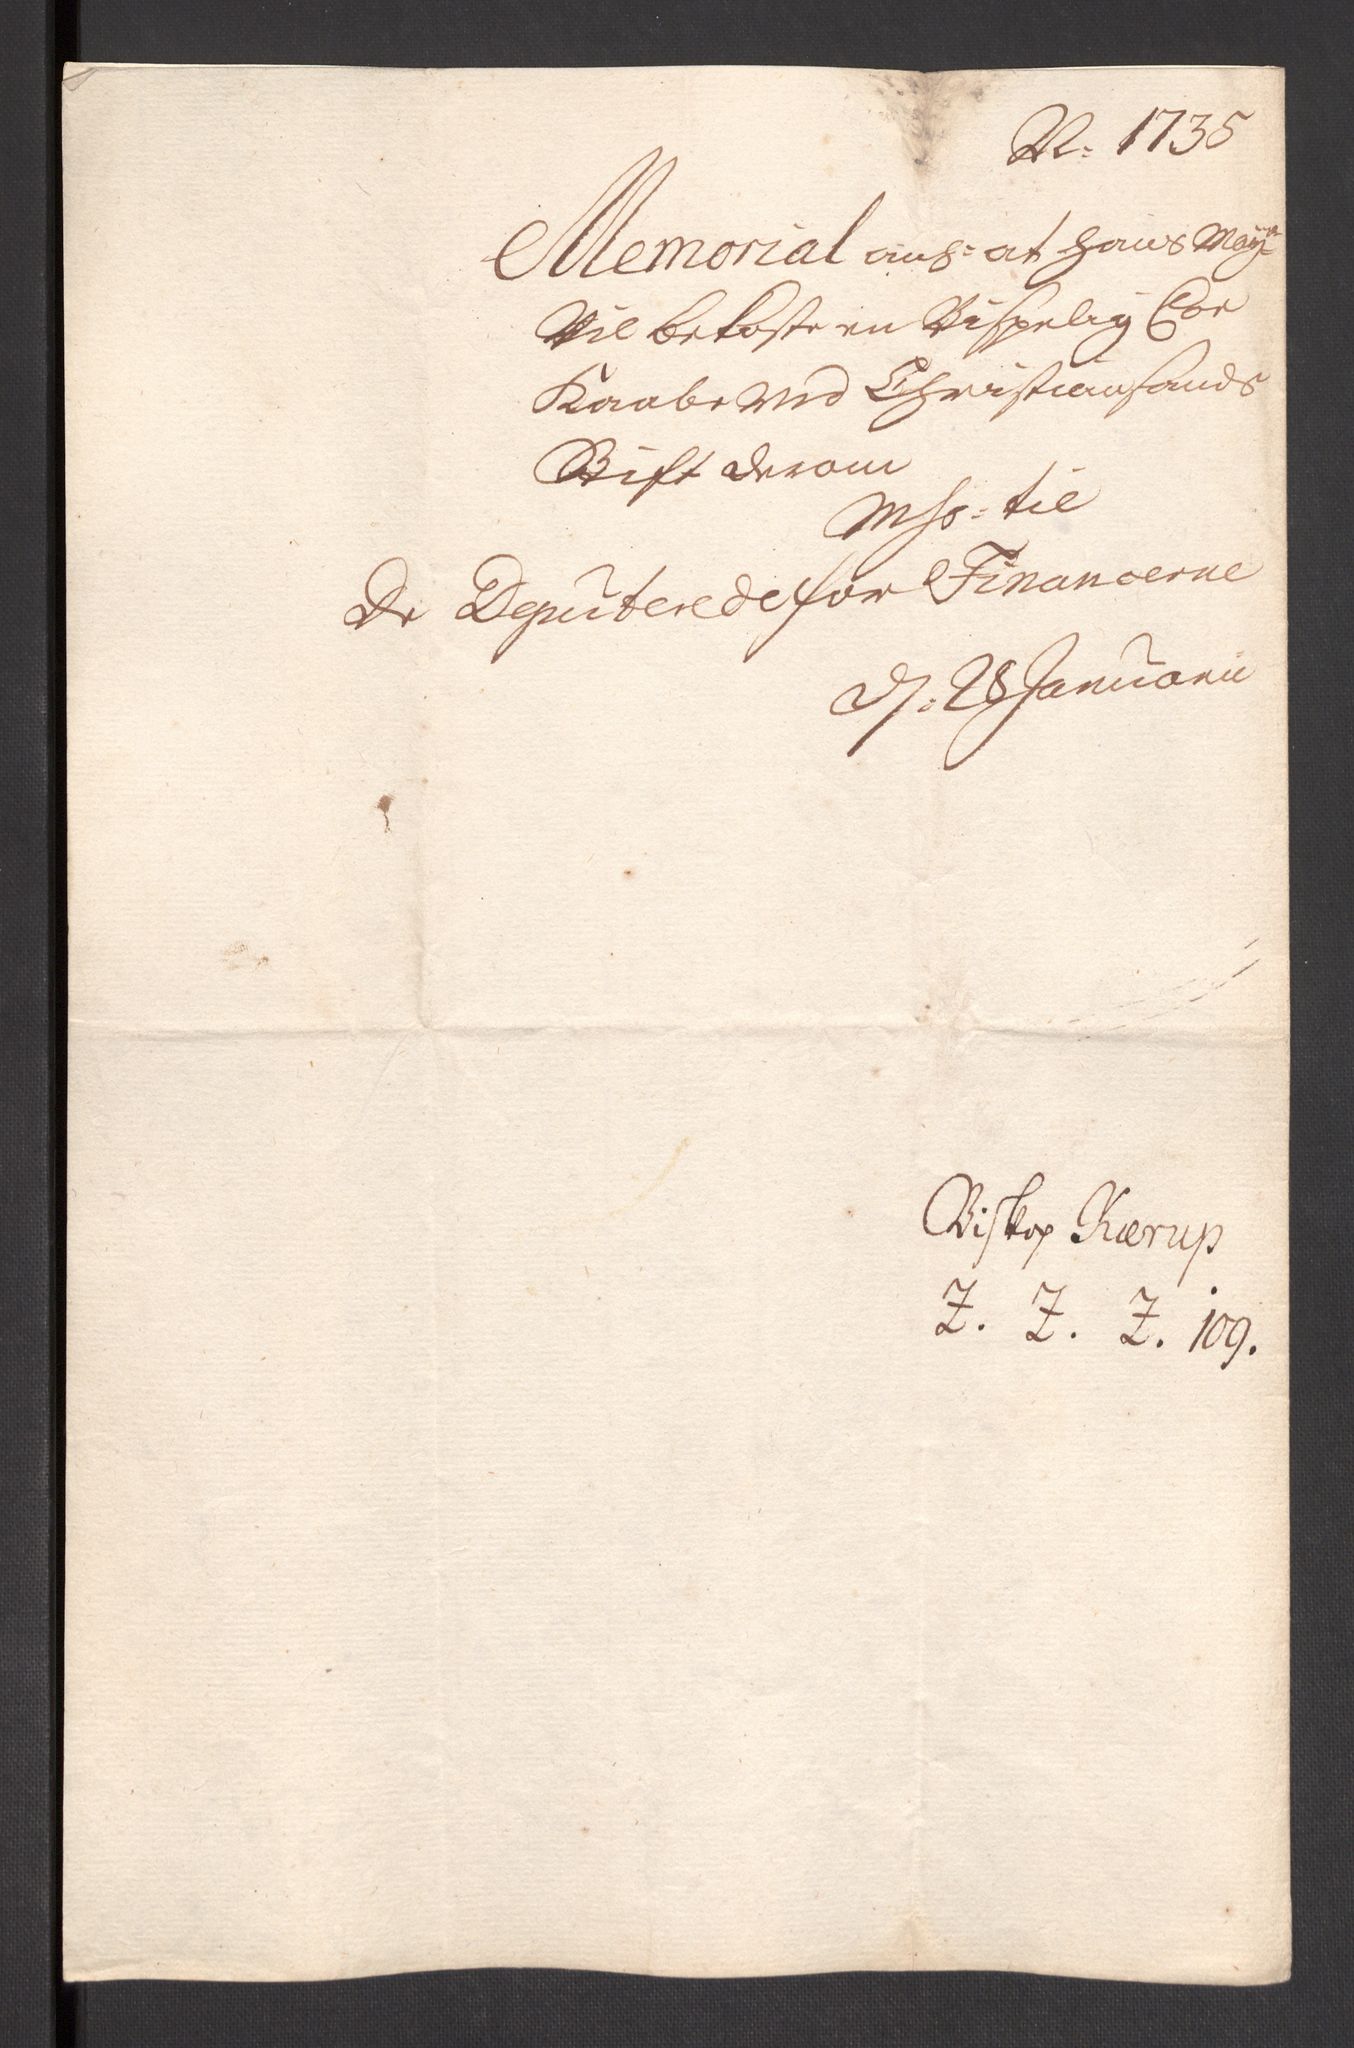 A: 1735
Memorial anh: at hans May:
Vil bekoste en Bispelig Cor
Kaabe ved Christiansands
Stift derom
til
De Deputerede for Financerne
d: 28 Januarii
Biskop Kærup
Z. Z. Z. 109.